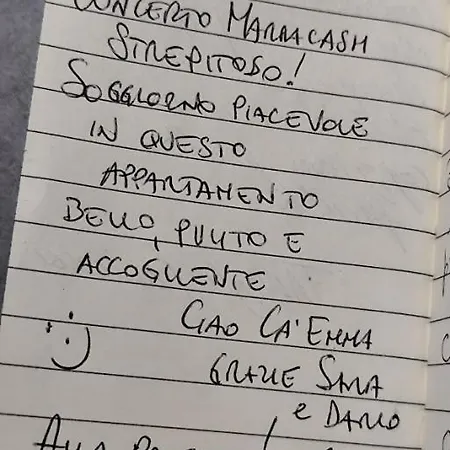 CONCERTO MARRACASH
STREPITOSO!
SOGGIORNO PIACEVOLE
IN QUESTO
APPARTAMENTO
BELLO, PULITO E
ACCOGLIENTE
CIAO CA' EMMA
GRAZIE SARA
e DARIO